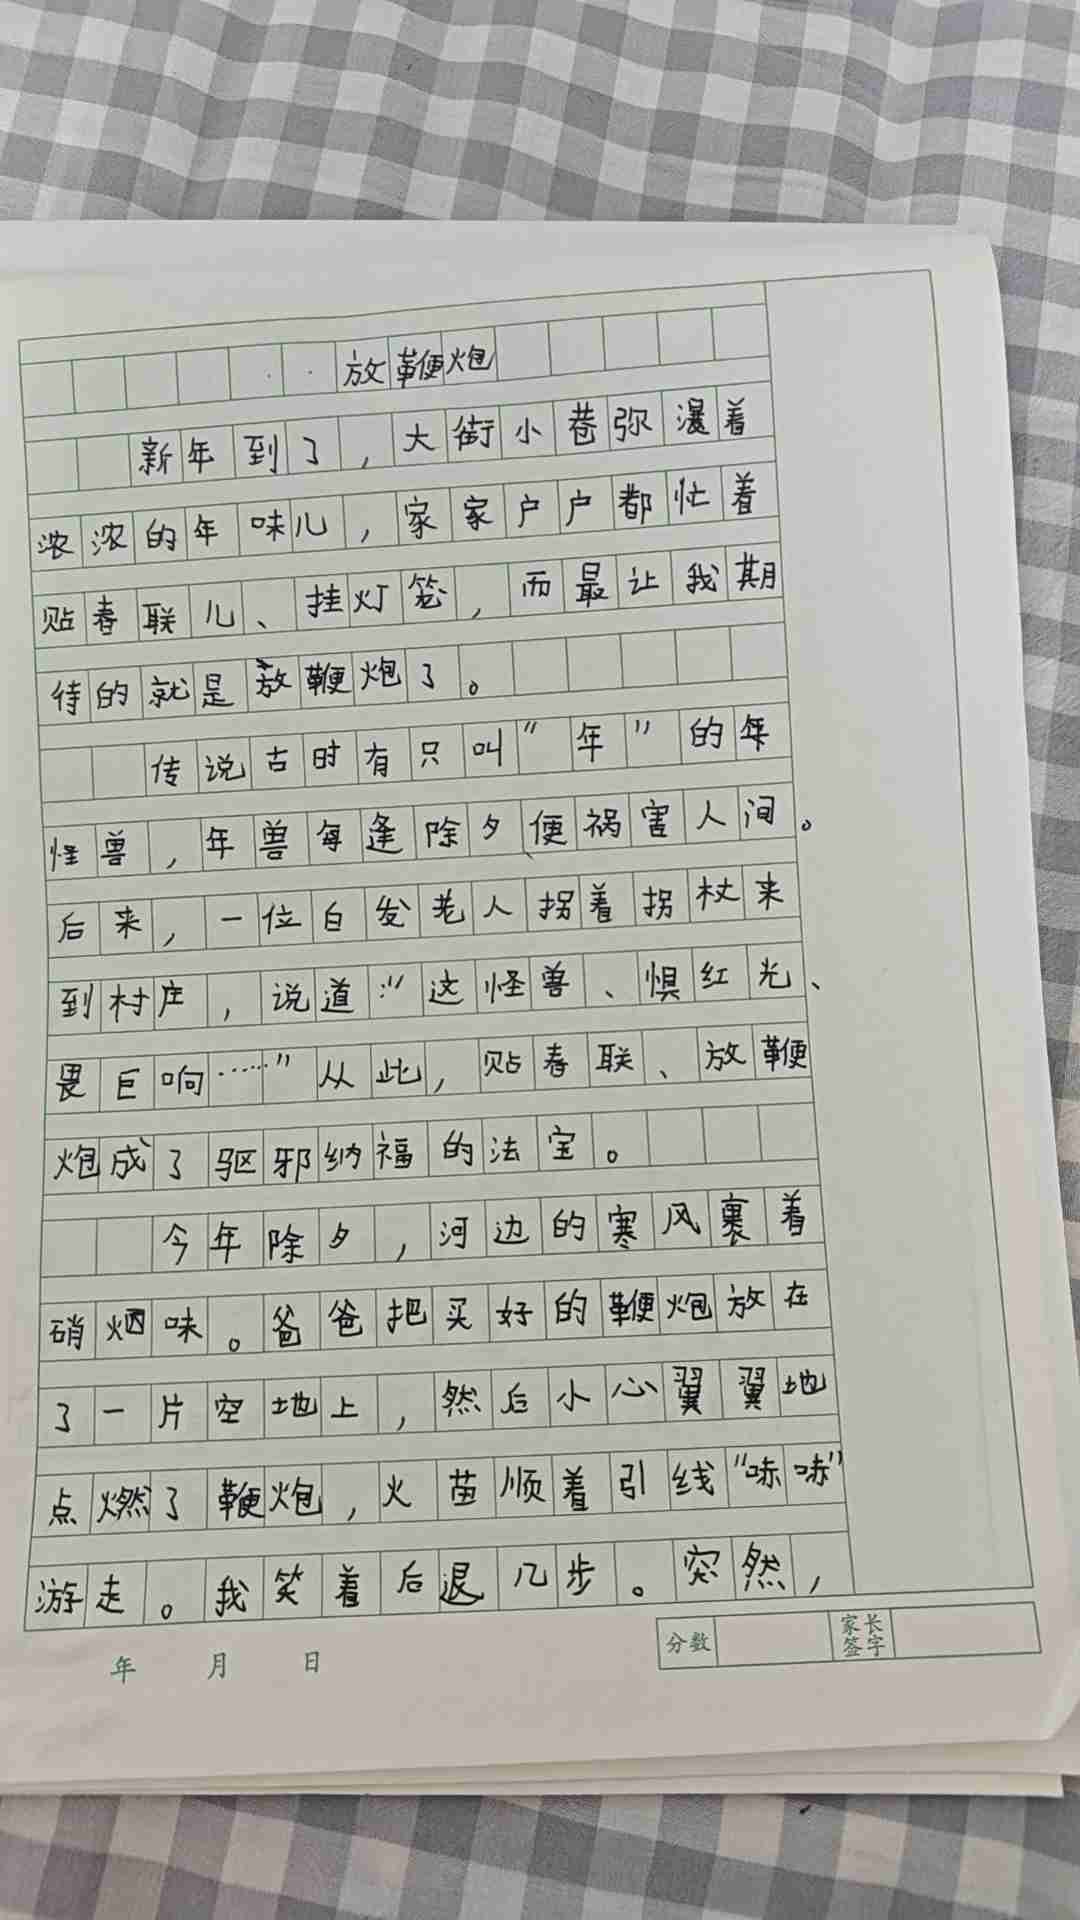 放鞭炮
新年到了，大街小巷弥漫着
浓浓的年味儿，家家户户都忙着
贴春联儿、挂灯笼，而最让我期
待的就是放鞭炮了。
传说古时有只叫“年”的年
怪兽，年兽每逢除夕便祸害人间。
后来，一位白发老人拐着拐杖来
到村庄，说道：“这怪兽、惧红光、
畏巨响……”从此，贴春联、放鞭
炮成了驱邪纳福的法宝。
今年除夕，河边的寒风裹着
硝烟味。爸爸把买好的鞭炮放在
了一片空地上，然后小心翼翼地
点燃了鞭炮，火苗顺着引线“哧哧”
游走。我笑着后退几步。突然，
年 月 日
分数
家长签字